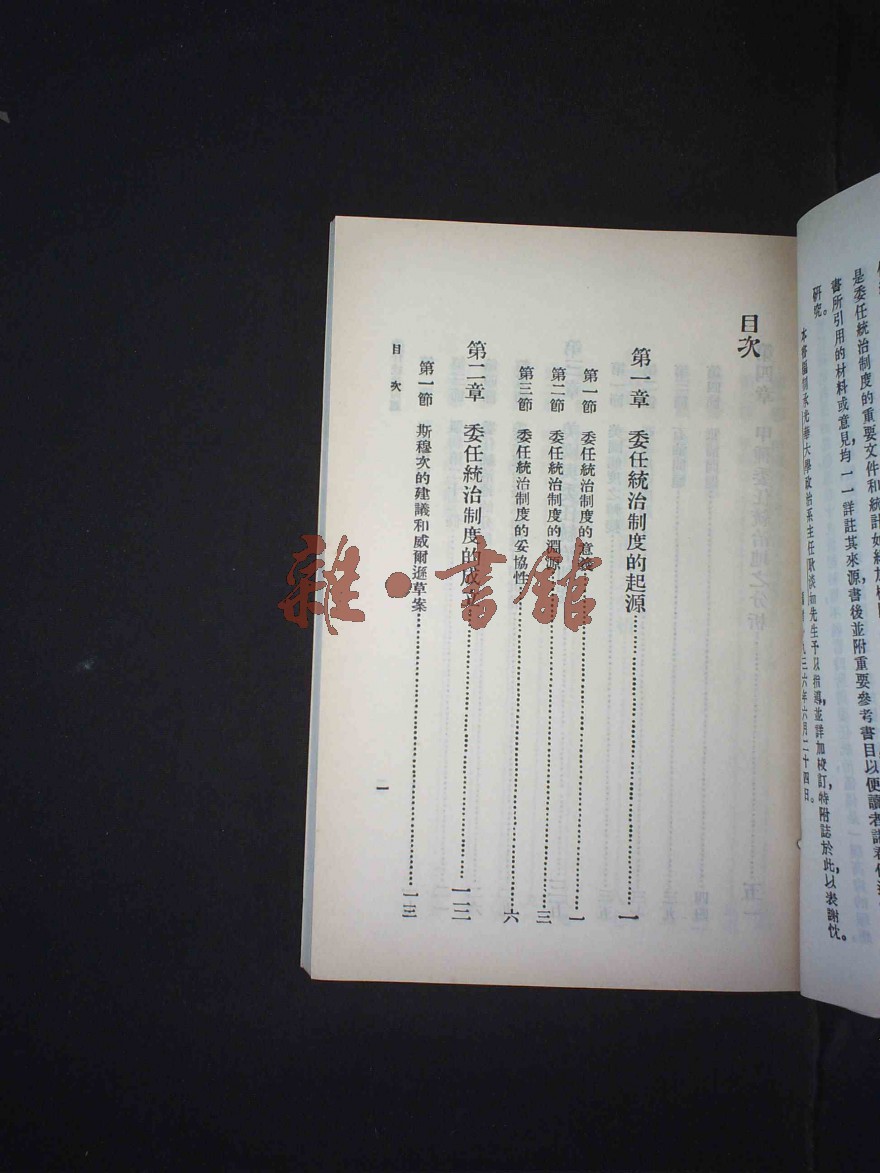 是委任統治制度的重要文件和統計
書所引用的材料或意見均一一詳註其來源書後並附重要參考書目以便讀者
研究。
大學政治系主任耿淡如先生予以指導並詳加校訂特附誌於此以表謝忱。
三六年六月二十四日。
目次
第一章 委任統治制度的起源……一
第一節 委任統治制度的意義……一
第二節 委任統治制度的淵源……三
第三節 委任統治制度的妥協性……六
第二章 委任統治制度的成立……一三
第一節 斯穆次的建議和威爾遜草案……一三
目次
一
雜·書館